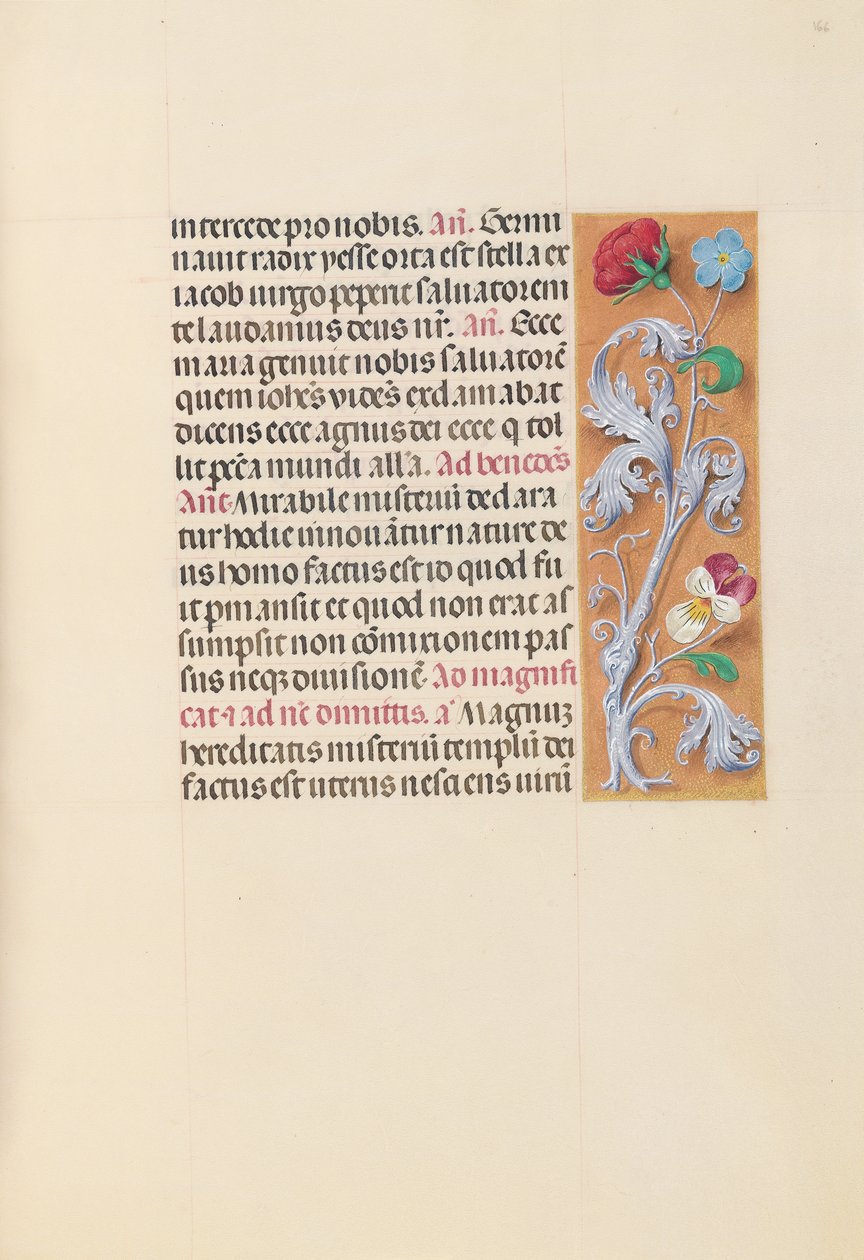 166
intercede pro nobis. Añ. Germi
nauit radix yesse orta est stella ex
iacob uirgo peperit saluatorem
te laudamus deus nr̄. Añ. Ecce
maria genuit nobis saluatorē
quem iohēs vidēs exclamabat
dicens ecce agnus dei ecce q tol
lit pc̄ca mundi all'a. Ad benedc̄s
Añt. Mirabile misteriū declara
tur hodie innouātur nature de
us homo factus est id quod fu
it pmansit et quod non erat as
sumpsit non cōmixionem pas
sus neqꝫ diuisionē. Ad magnifi
cat ⁊ ad nc̄ dimittis. a' Magnuꝫ
hereditatis misteriū templū dei
factus est uterus nesciens uirū